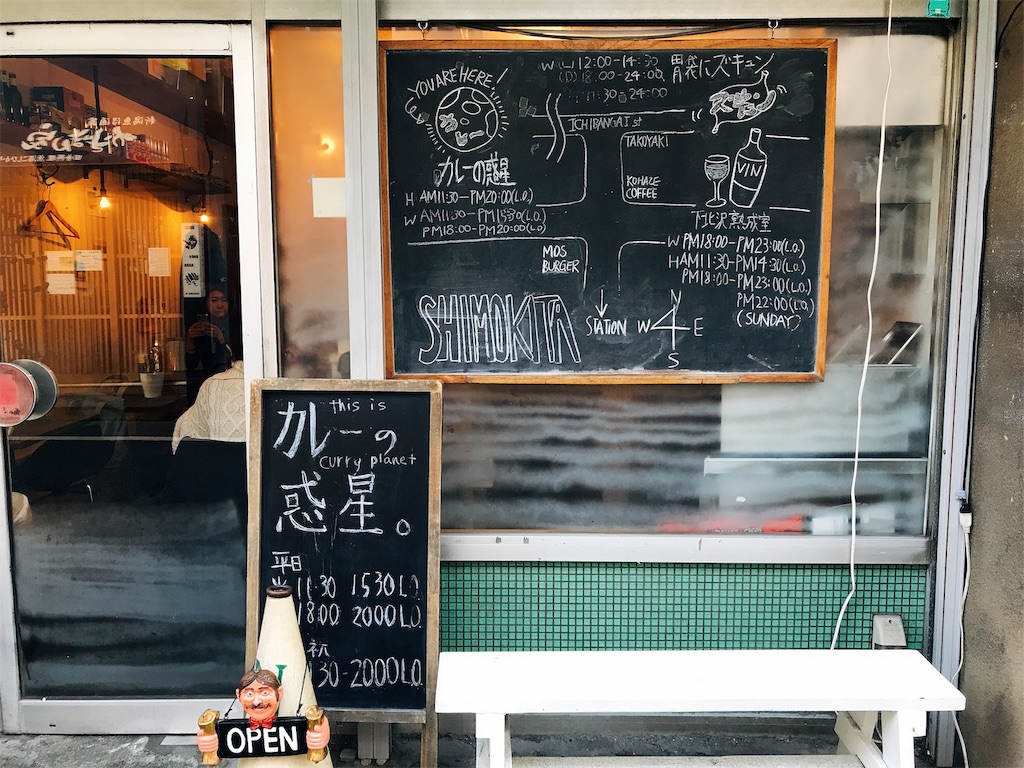 YOU ARE HERE!
カレー
カレーの惑星
H AM11:30-PM20:00(L.O.)
W AM11:30-PM1530(L.O.)
PM18:00-PM20:00(L.O.)
W(L)12:00-14:30
(D)18:00-24:00
11:30-24:00
胃袋にズキュン
ICHIBANGAI st
TAKOYAKI
KOHAZE
COFFEE
VIN
下北沢熟成室
W PM18:00-PM23:00(L.O.)
H AM11:30-PM14:30(L.O.)
PM18:00-PM23:00(L.O.)
PM22:00(L.O.)
(SUNDAY)
MOS
BURGER
SHIMOKITA
STATION
N
W
E
S
this is
カレーの
curry planet
惑星。
平日
11:30 1530LO.
18:00 2000LO.
祝
:30-2000LO.
OPEN